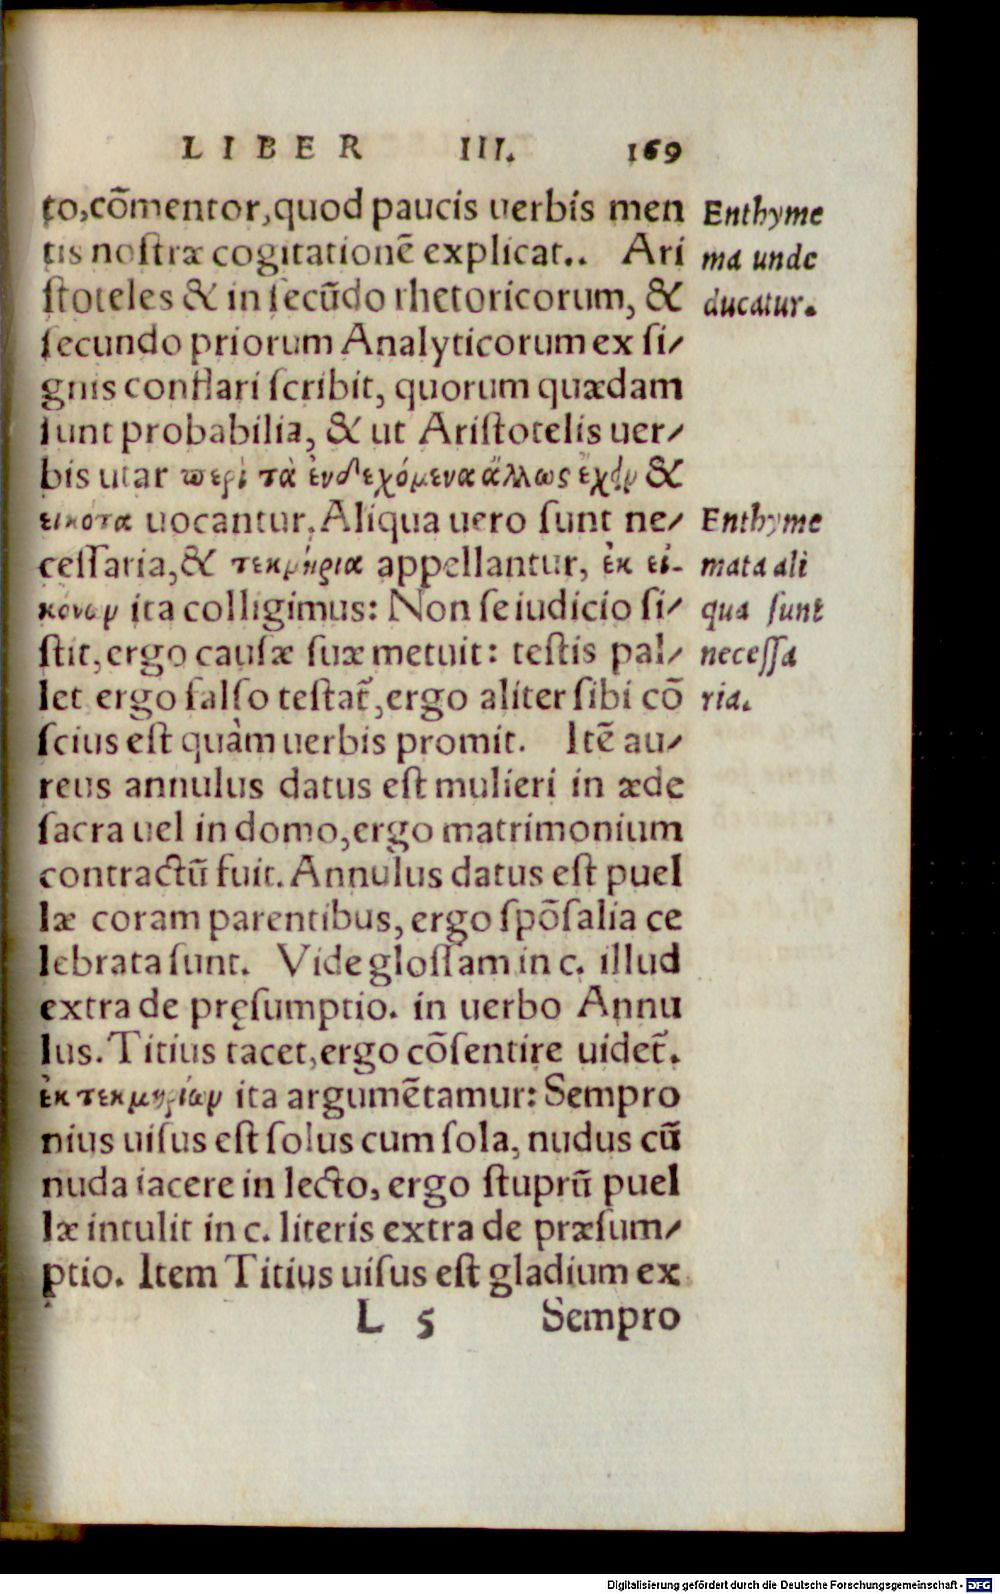 LIBER III. 169
to,cōmentor,quod paucis uerbis men
tis nostræ cogitationē explicat.. Ari
stoteles & in secūdo rhetoricorum, &
secundo priorum Analyticorum ex si/
gnis conflari scribit, quorum quædam
sunt probabilia, & ut Aristotelis uer/
bis utar περὶ τὰ ἐνδεχόμενα ἄλλως ἔχειν &
εικότα uocantur. Aliqua uero sunt ne/
cessaria,& τεκμήρια appellantur, ἐκ εἰ-
κόνων ita colligimus: Non se iudicio si/
stit,ergo causæ suæ metuit: testis pal/
let ergo falso testat᷑,ergo aliter sibi cō
scius est quàm uerbis promit. Itē au/
reus annulus datus est mulieri in æde
sacra uel in domo,ergo matrimonium
contractū fuit. Annulus datus est puel
læ coram parentibus, ergo spōsalia ce
lebrata sunt. Vide glossam in c. illud
extra de pręsumptio. in uerbo Annu
lus. Titius tacet,ergo cōsentire uidet᷑.
ἐκ τεκμηρίων ita argumētamur: Sempro
nius uisus est solus cum sola, nudus cū
nuda iacere in lecto, ergo stuprū puel
læ intulit in c. literis extra de præsum/
ptio. Item Titius uisus est gladium ex
L 5 Sempro
Enthyme
ma unde
ducatur.
Enthyme
mata ali
qua sunt
necessa
ria.
Digitalisierung gefördert durch die Deutsche Forschungsgemeinschaft - DFG